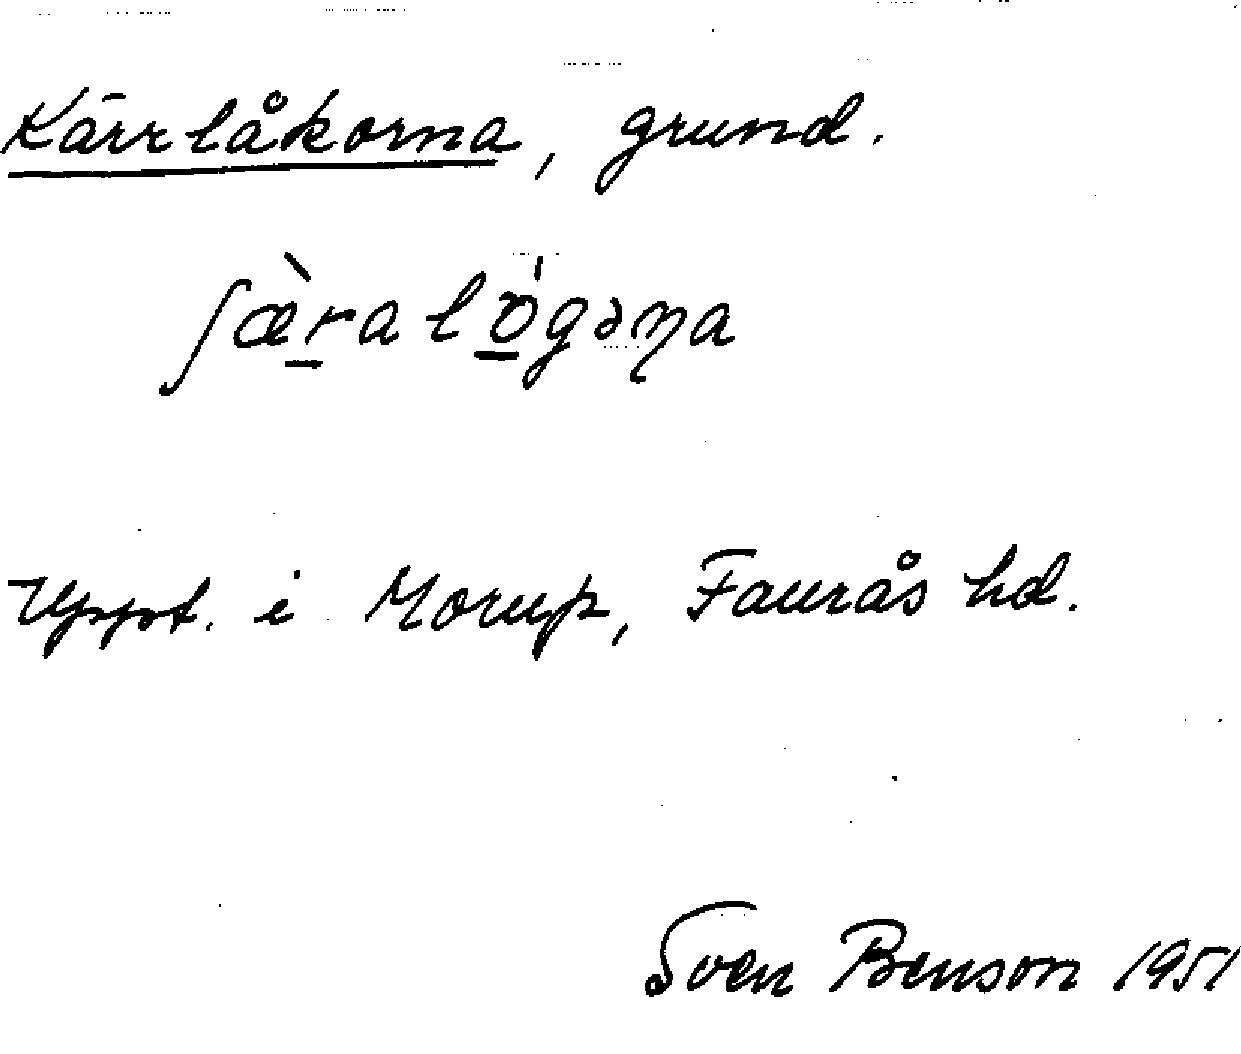 Kärrlåkorna, grund.
ʃæ̀r̲alo̲̍gəɲa
Uppt. i Morup, Faurås hd.
Sven Benson 1951